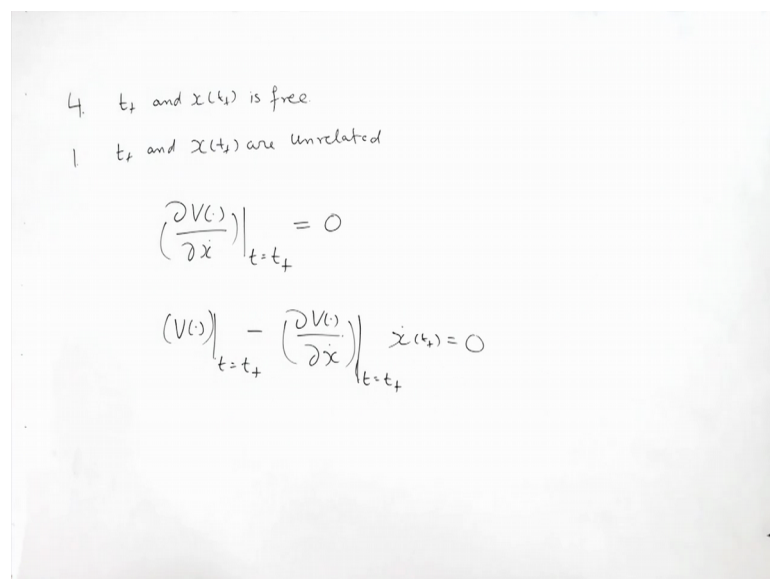 4. t₊ and x(t₊) is free.
1 t₊ and x(t₊) are unrelated
(∂V(.)/∂ẋ)|ₜ₌ₜ₊ = 0
(V(.))|ₜ₌ₜ₊ − (∂V(.)/∂ẋ)|ₜ₌ₜ₊ ẋ(t₊) = 0